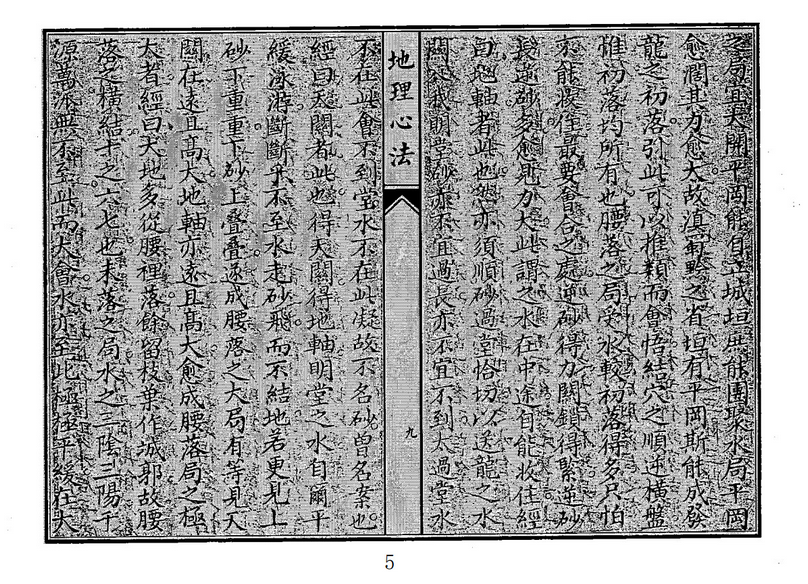 之局宜大開平岡能自立城垣庶能團聚水局平岡
愈濶其力愈大故滇南黔之省垣有平岡斯能成發
龍之初落引此可以推類而會悟結穴之順逆橫盤
惟初落均所有也腰落之局受水較初落得多只怕
不能收住最要會合之處逆砂得力關鎖得緊逆砂
長逆砂多愈見力大此謂之水在中途自能收住經
曰地軸者此也然亦須順砂過堂恰切以送龍之水
關於我明堂砂亦不宜過長亦不宜不到太過堂水
地理心法
九
不在此會不到堂水不在此凝故不名砂曾名案也
經曰天關者此也得天關得地軸明堂之水自爾平
緩泳游斷斷乎不至水走砂飛而不結地若更見上
砂下重重下砂上叠叠遂成腰落之大局有等見天
關在遠且高大地軸亦遠且高大愈成腰落局之極
大者經曰天地多從腰裡落餘留枝葉作城郭故腰
落之橫結十之六七也末落之局水之三陰三陽千
源萬派無不至此而大會水亦至此極極平緩在大
5